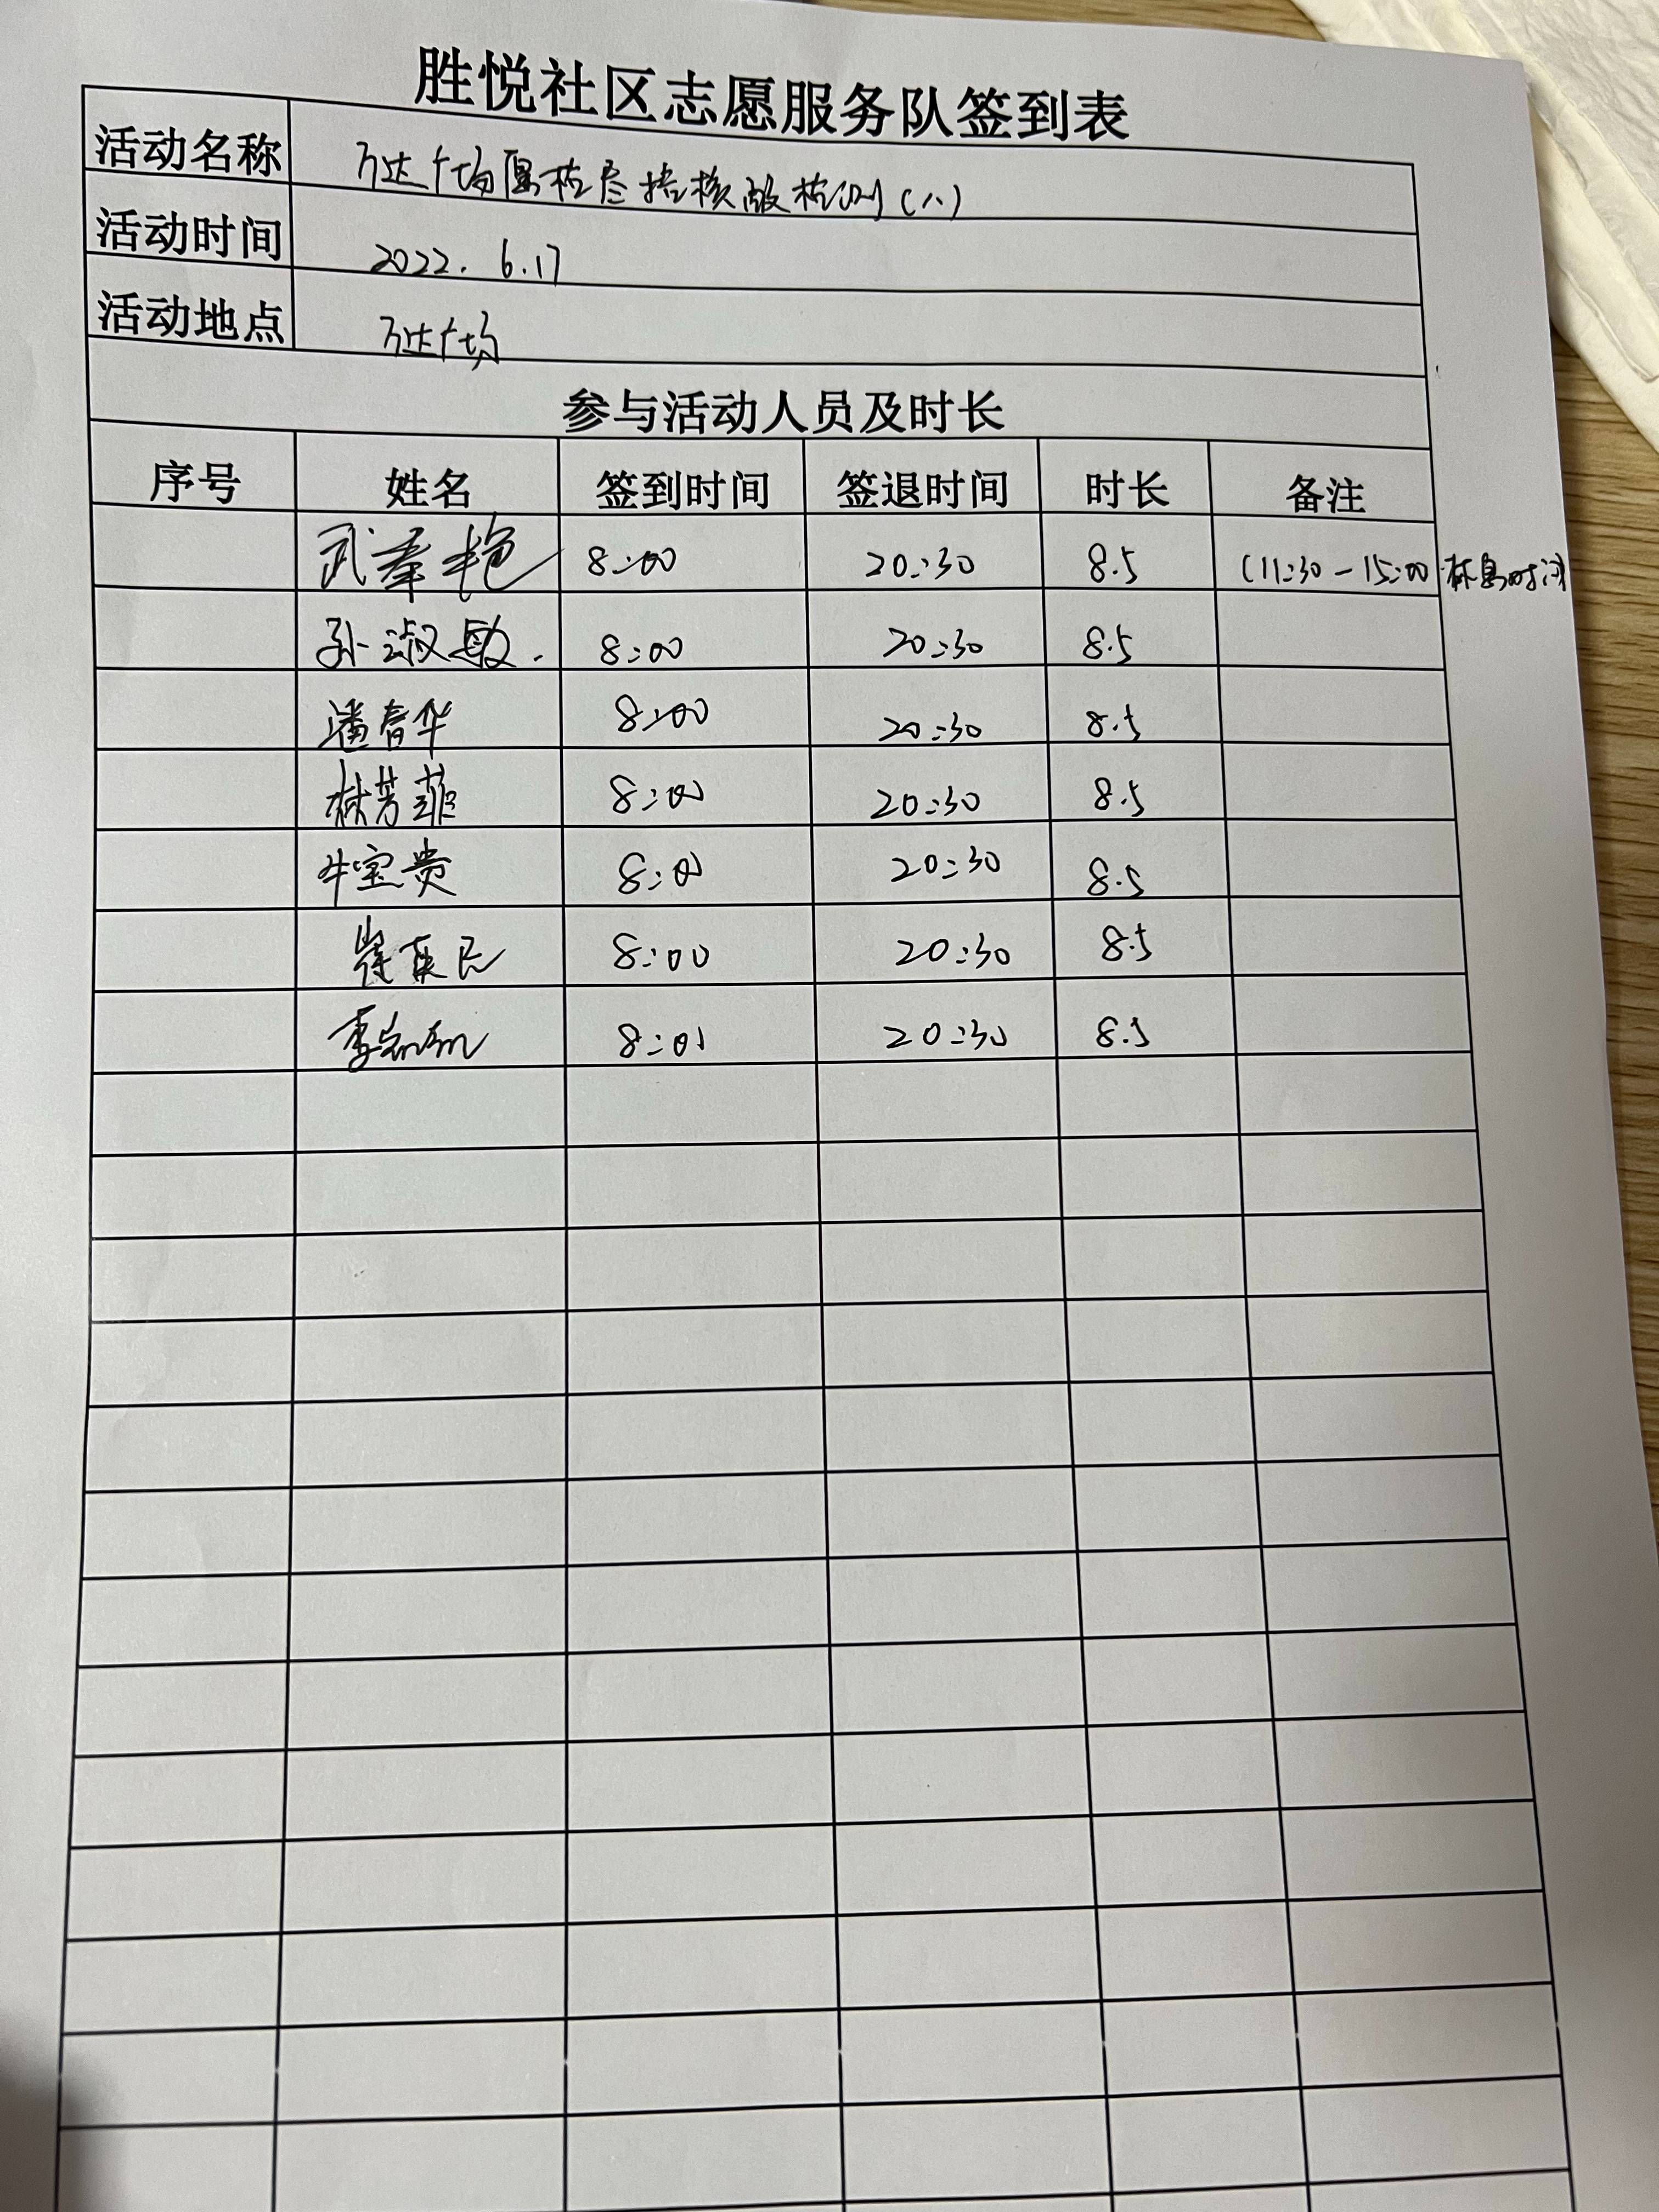 胜悦社区志愿服务队签到表
活动名称 万达广场愿检尽检核酸检测(八)
活动时间 2022. 6.17
活动地点 万达广场
参与活动人员及时长
序号 姓名 签到时间 签退时间 时长 备注
武秦艳 8:00 20:30 8.5 (11:30-15:00 休息时间)
孙淑敏. 8:00 20:30 8.5
潘春华 8:00 20:30 8.5
林芳菲 8:00 20:30 8.5
牛宝贵 8:00 20:30 8.5
8:00 20:30 8.5
8:00 20:30 8.5